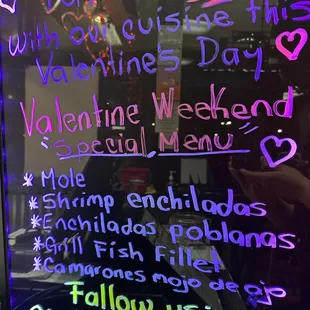 with our cuisine this
Valentine's Day
Valentine Weekend
"Special Menu"
* Mole
* Shrimp enchiladas
* Enchiladas poblanas
* Grill Fish Fillet
* Camarones mojo de ajo
Fallow us: